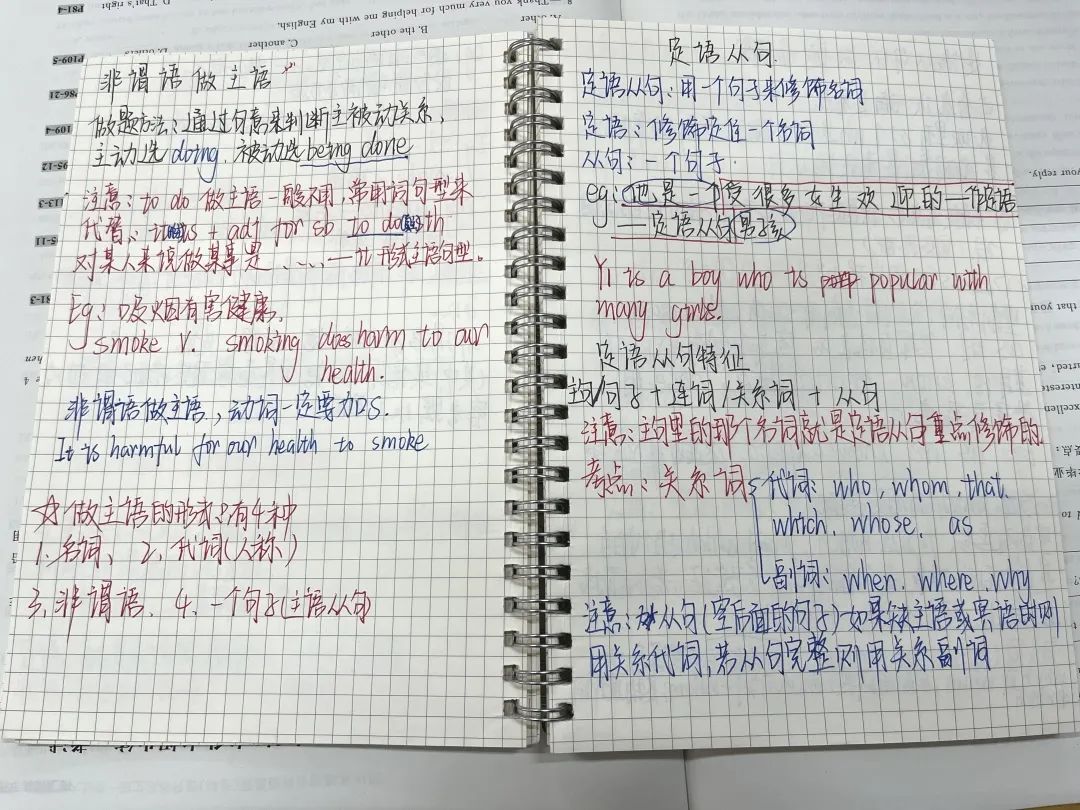 8. — Thank you very much for helping me with my English.
D. That's right
P81-4
A. other
B. the other
C. another
D. others
P109-5
P86-21
109-4
95-12
113-3
5-11
81-3
非谓语做主语
做题方法：通过句意来判断主被动关系，
主动选 doing，被动选 being done
注意：to do 做主语一般不用，常用词句型来
代替：it is + adj for sb to do sth
对某人来说做某事是……— it 形式主语句型。
Eg：吸烟有害健康，
smoke v. smoking does harm to our
health.
非谓语做主语，动词一定要加s.
It is harmful for our health to smoke
☆做主语的形式：有4种
1、名词、 2、代词(人称)
3、非谓语、 4、一个句子(主语从句)
定语从句
定语从句：用一个句子来修饰名词
定语：修饰定住一个名词
从句：一个句子.
eg：他是一个受很多女生欢迎的—作定语
—定语从句 男孩
Yi is a boy who is popular with
many girls.
定语从句特征
主句/句子 + 连词/关系词 + 从句
注意：主句里的那个名词就是定语从句重点修饰的
考点：关系词 代词：who, whom, that,
which, whose, as
副词：when, where, why
注意：从句(空后面的句子)如果缺主语或宾语时则
用关系代词，若从句完整则用关系副词
your reply.
that your